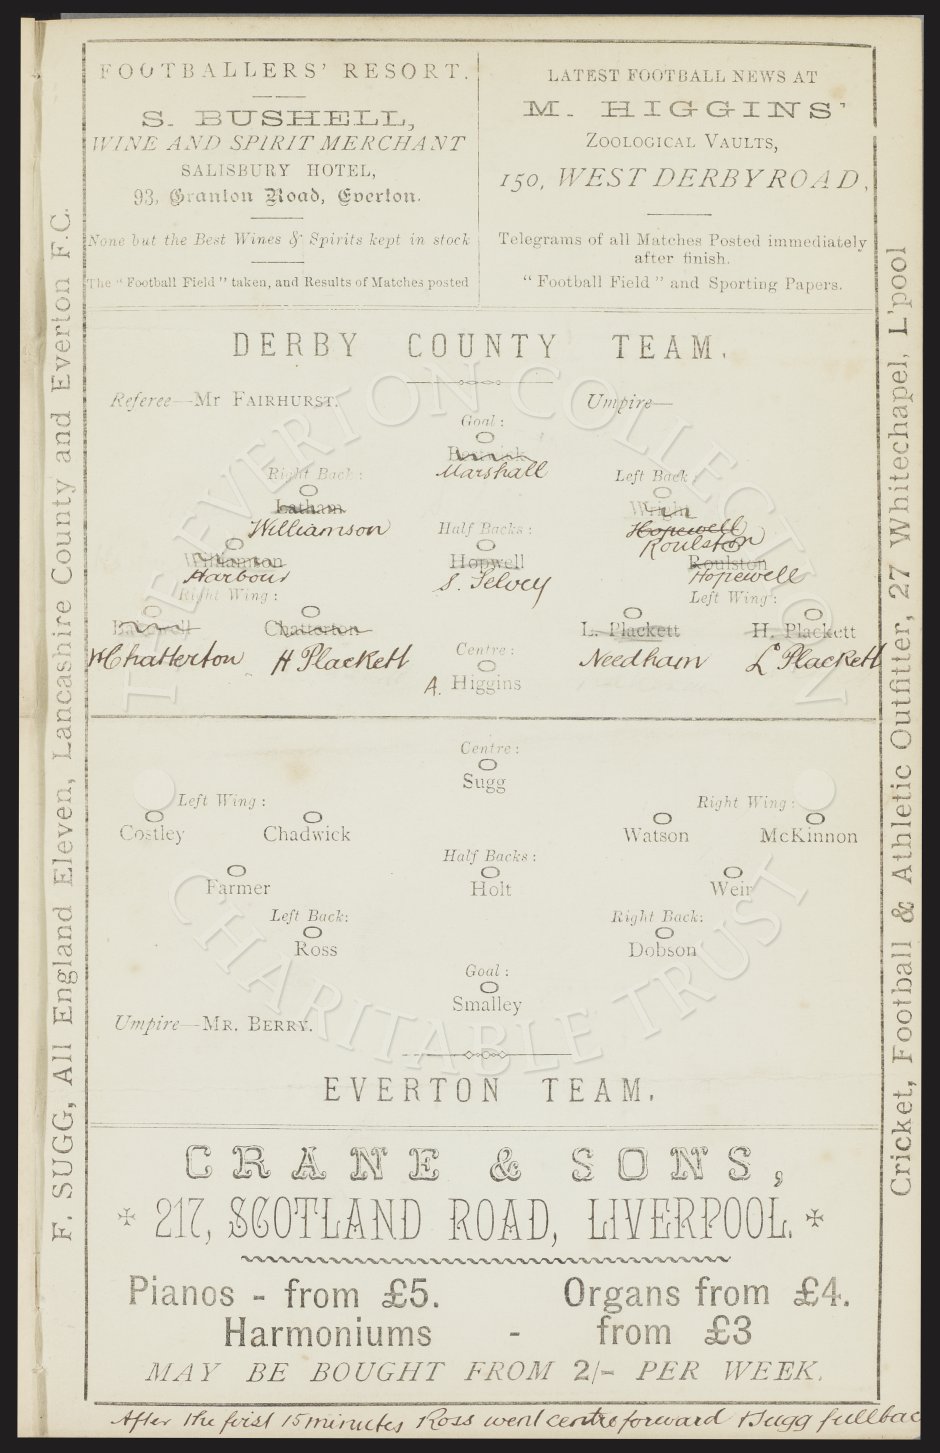 FOOTBALLERS' RESORT.
S. BUSHELL,
WINE AND SPIRIT MERCHANT
SALISBURY HOTEL,
93, Granton Road, Everton.
None but the Best Wines & Spirits kept in stock
The "Football Field" taken, and Results of Matches posted
LATEST FOOTBALL NEWS AT
M. HIGGINS'
ZOOLOGICAL VAULTS,
150, WEST DERBY ROAD,
Telegrams of all Matches Posted immediately
after finish.
"Football Field" and Sporting Papers.
F. SUGG, All England Eleven, Lancashire County and Everton F.C.
DERBY COUNTY TEAM.
Referee—Mr FAIRHURST.
Umpire—
Goal:
Marshall
Right Back:
Left Back:
Latham
Wright
Williamson
Hopewell
Roulston
Half Backs:
Williamson
Hopwell
Roulston
Harbour
S. Selvey
Hopewell
Right Wing:
Left Wing:
Chatterton
L. Plackett
H. Plackett
W Chatterton
H Plackett
Needham
L Plackett
Centre:
A. Higgins
Centre:
Sugg
Left Wing:
Right Wing:
Costley
Chadwick
Watson
McKinnon
Half Backs:
Farmer
Holt
Weir
Left Back:
Right Back:
Ross
Dobson
Goal:
Smalley
Umpire—MR. BERRY.
EVERTON TEAM.
THE EVERTON COLLECTION
CHARITABLE TRUST
Cricket, Football & Athletic Outfitter, 27 Whitechapel, L'pool
CRANE & SONS,
217, SCOTLAND ROAD, LIVERPOOL.
Pianos - from £5.
Organs from £4.
Harmoniums - from £3
MAY BE BOUGHT FROM 2/- PER WEEK.
After the first 15 minutes Ross went centre forward & Sugg fullbac